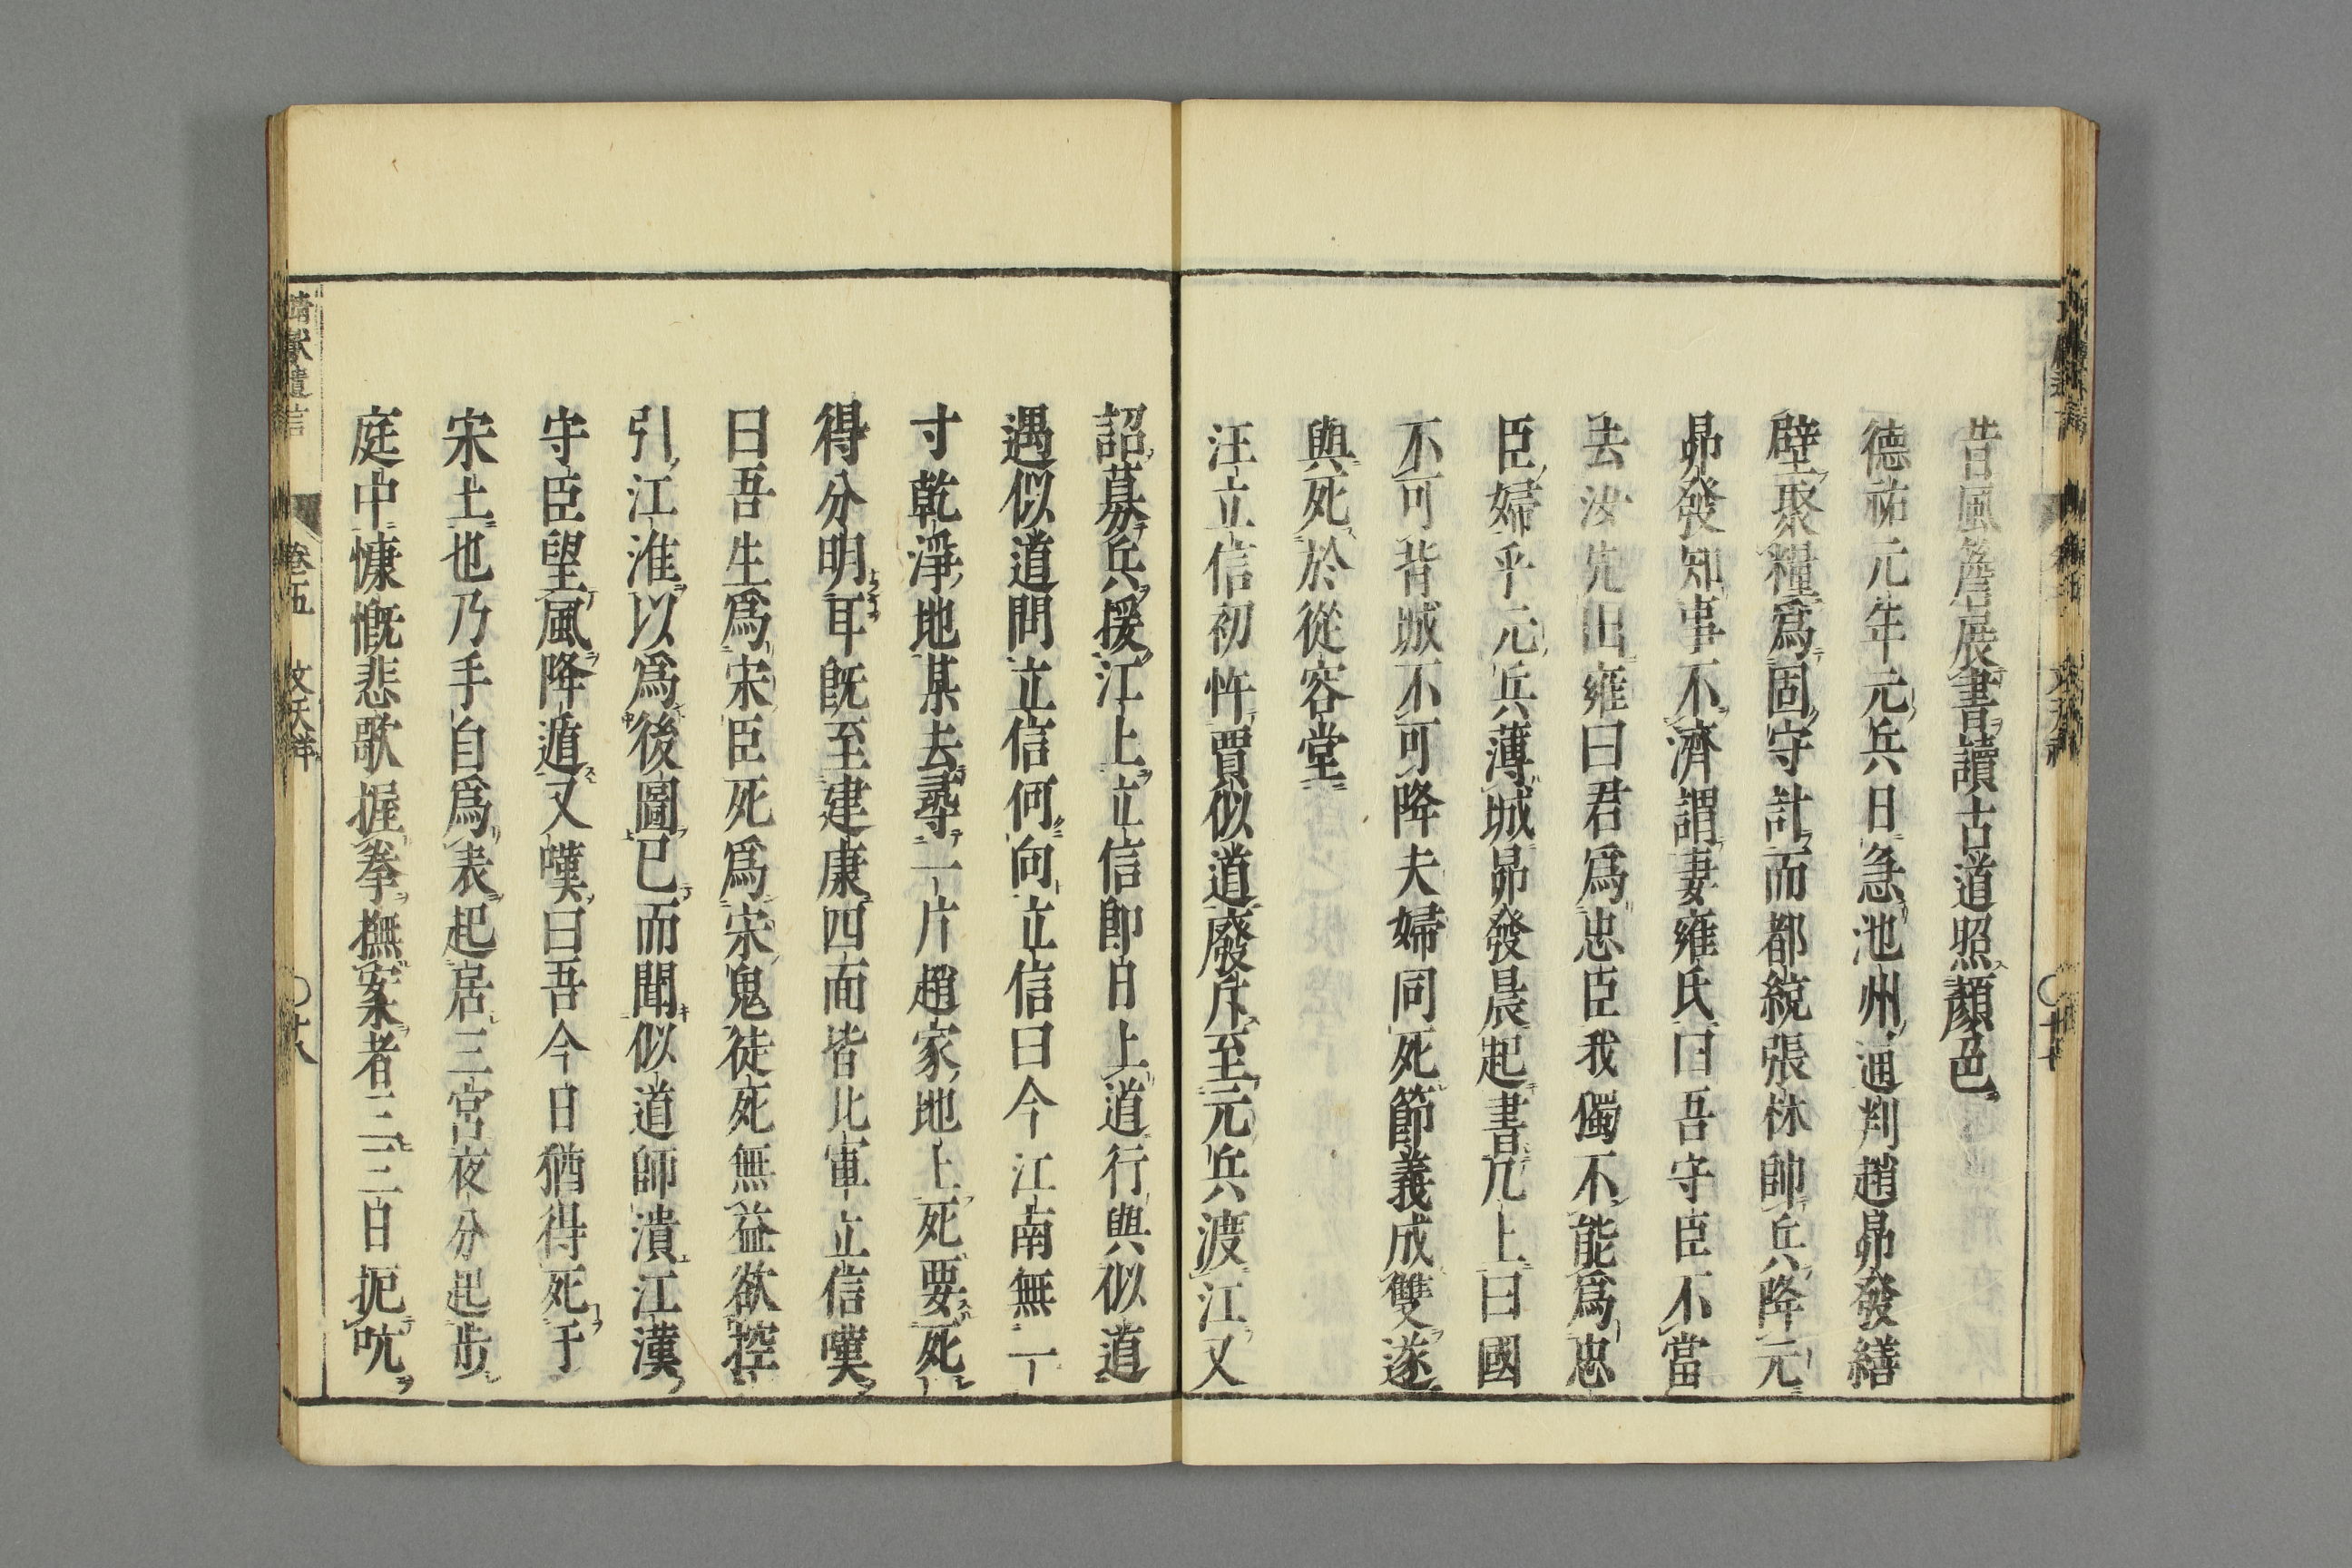 昔風簷展書讀古道照顏色
德祐元年元兵日急池州通判趙昴發繕
壁聚糧爲固守計而都統張林帥兵降元
昴發知事不濟謂妻雍氏曰吾守臣不當
去汝先出雍曰君爲忠臣我獨不能爲忠
臣婦乎元兵薄城昴發晨起書几上曰國
不可背城不可降夫婦同死節義成雙遂
與死於從容堂
汪立信初忤賈似道廢斥至元兵渡江又
詔募兵援江上立信卽日上道行與似道
遇似道問立信何向立信曰今江南無一
寸乾淨地某去尋一片趙家地上死要死
得分明耳既至建康四面皆北軍立信嘆
曰吾生爲宋臣死爲宋鬼徒死無益欲控
引江淮以爲後圖已而聞似道師潰江漢
守臣望風降遁又嘆曰吾今日猶得死于
宋土也乃手自爲表起居三宮夜分起步
庭中慷慨悲歌握拳撫案者三三日扼吭
靖献遺言 卷五 文天祥 〇廿八